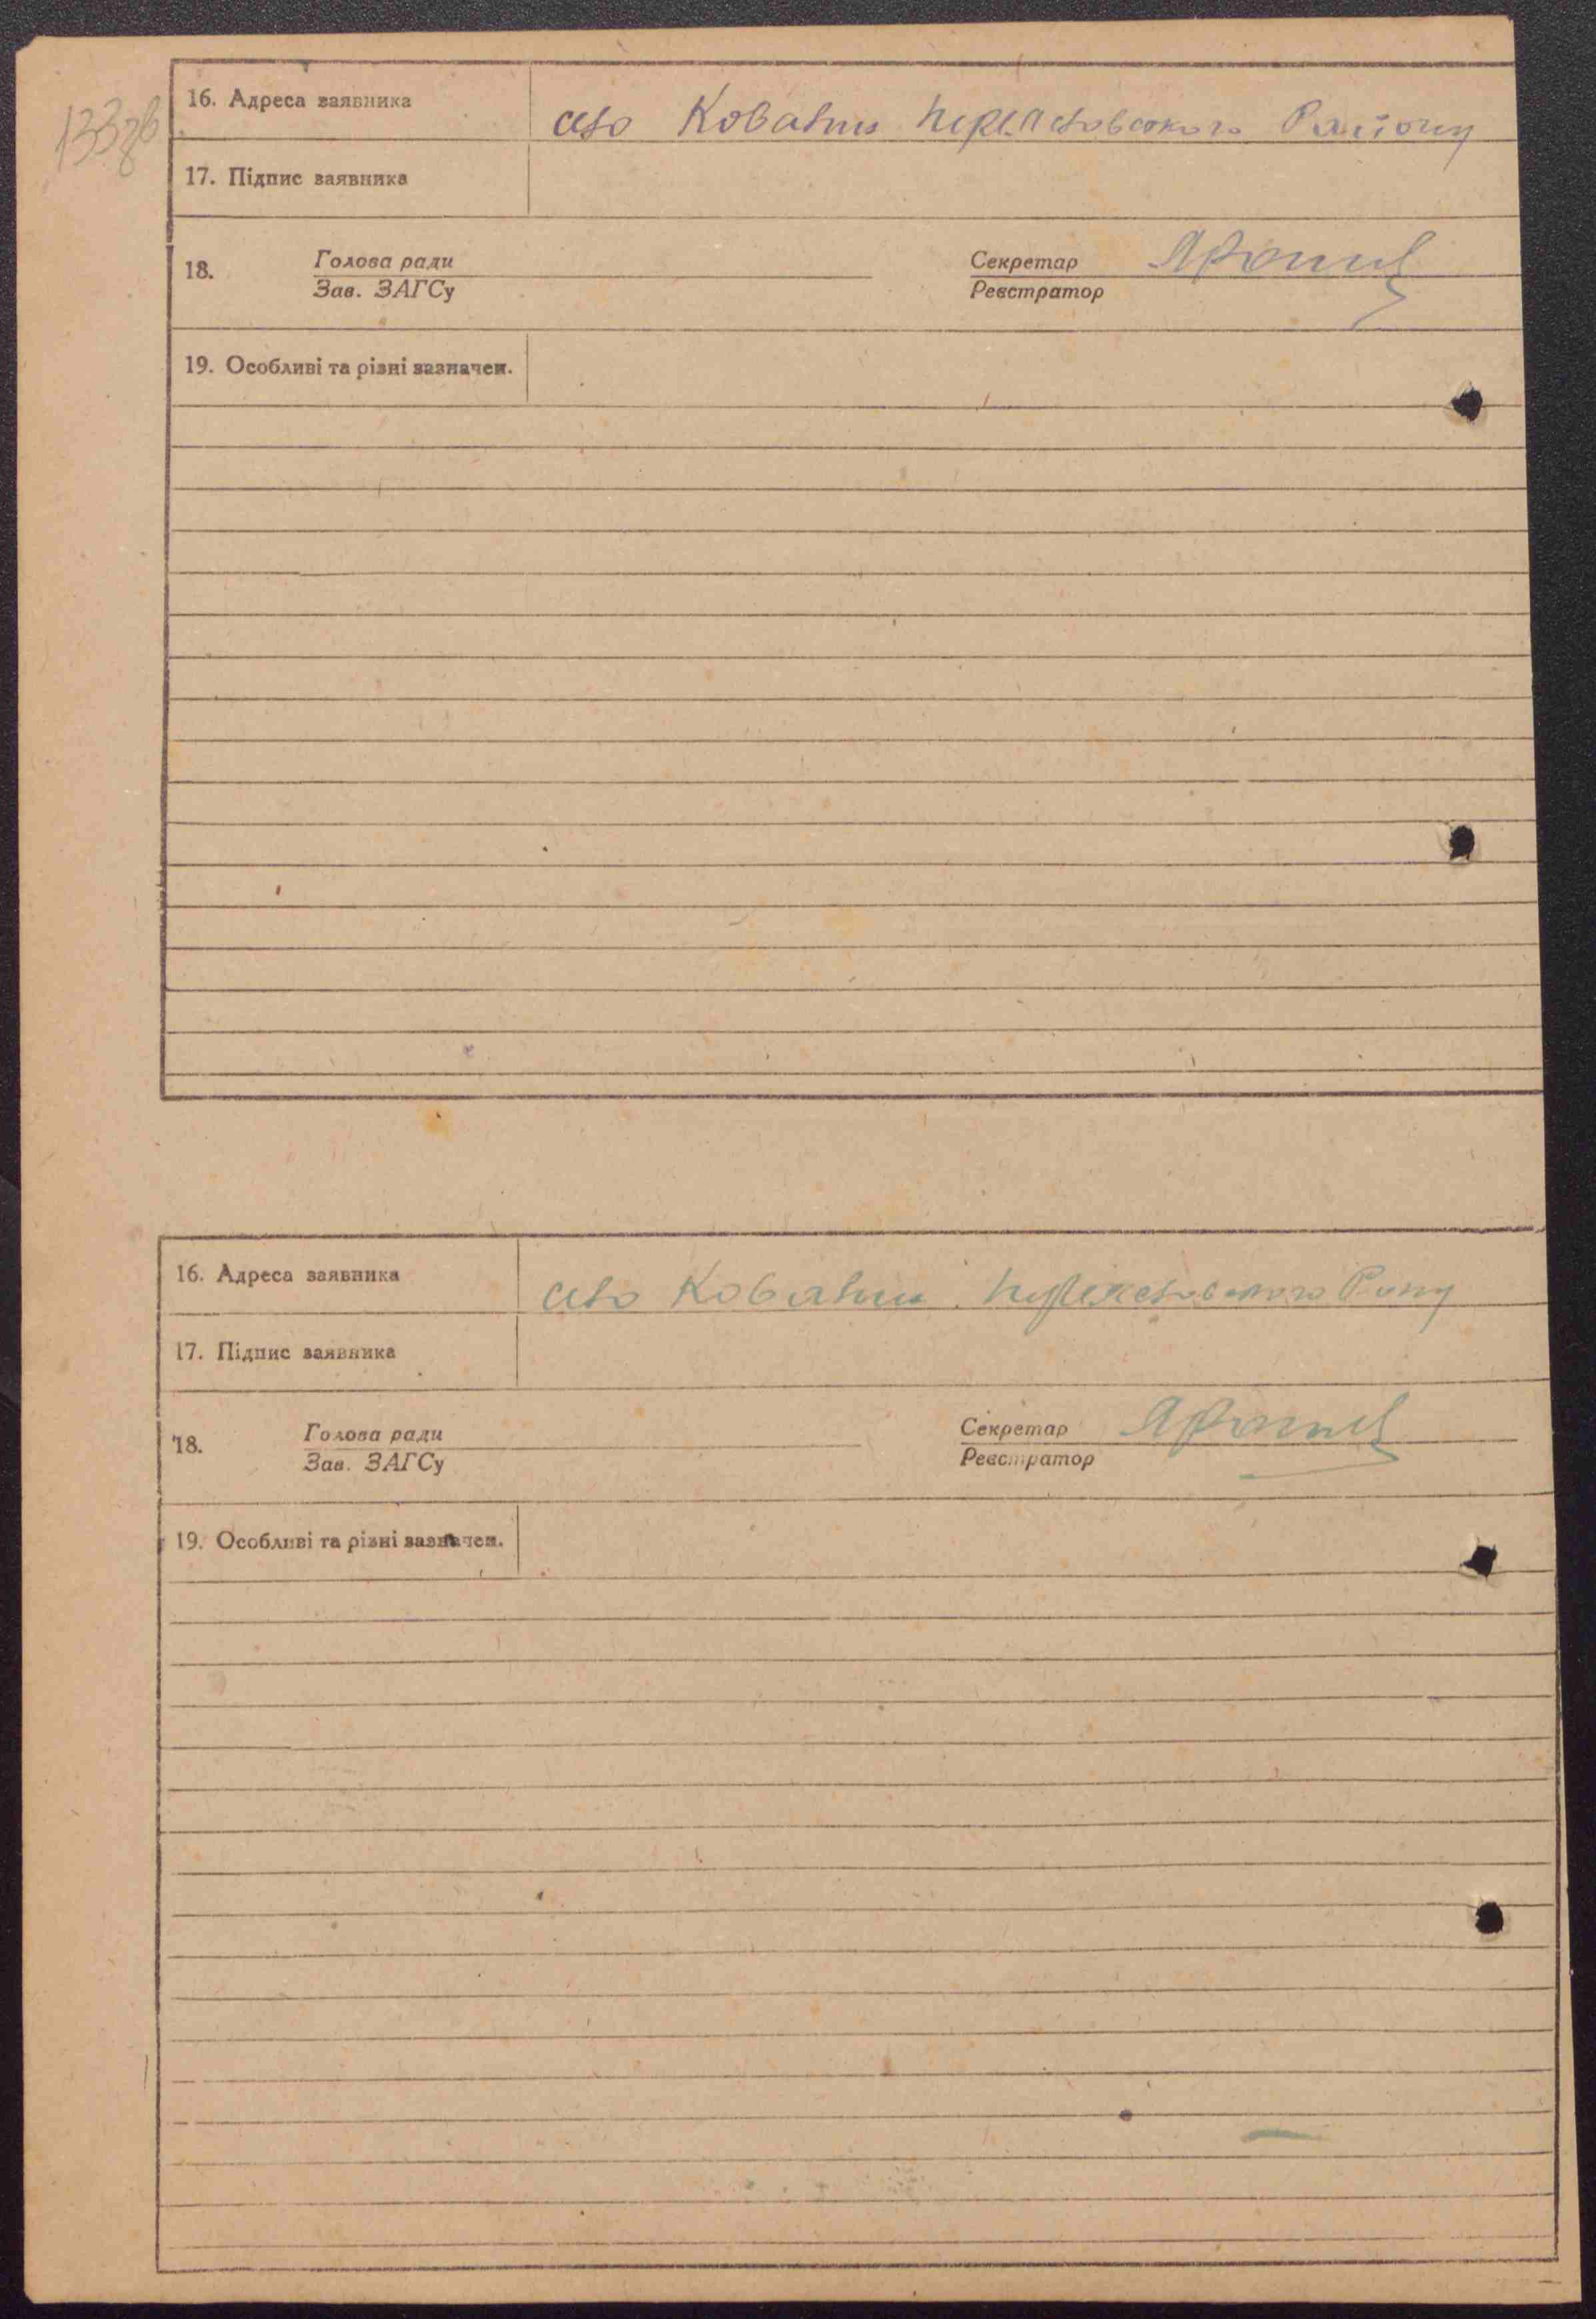 133зв
16. Адреса заявника село Ковалин Переяславского Району
17. Підпис заявника
18. Голова ради Секретар
Зав. ЗАГСу Реєстратор
19. Особливі та різні зазначен.
16. Адреса заявника село Ковалин Переяславского Р-ону
17. Підпис заявника
18. Голова ради Секретар
Зав. ЗАГСу Реєстратор
19. Особливі та різні зазначен.